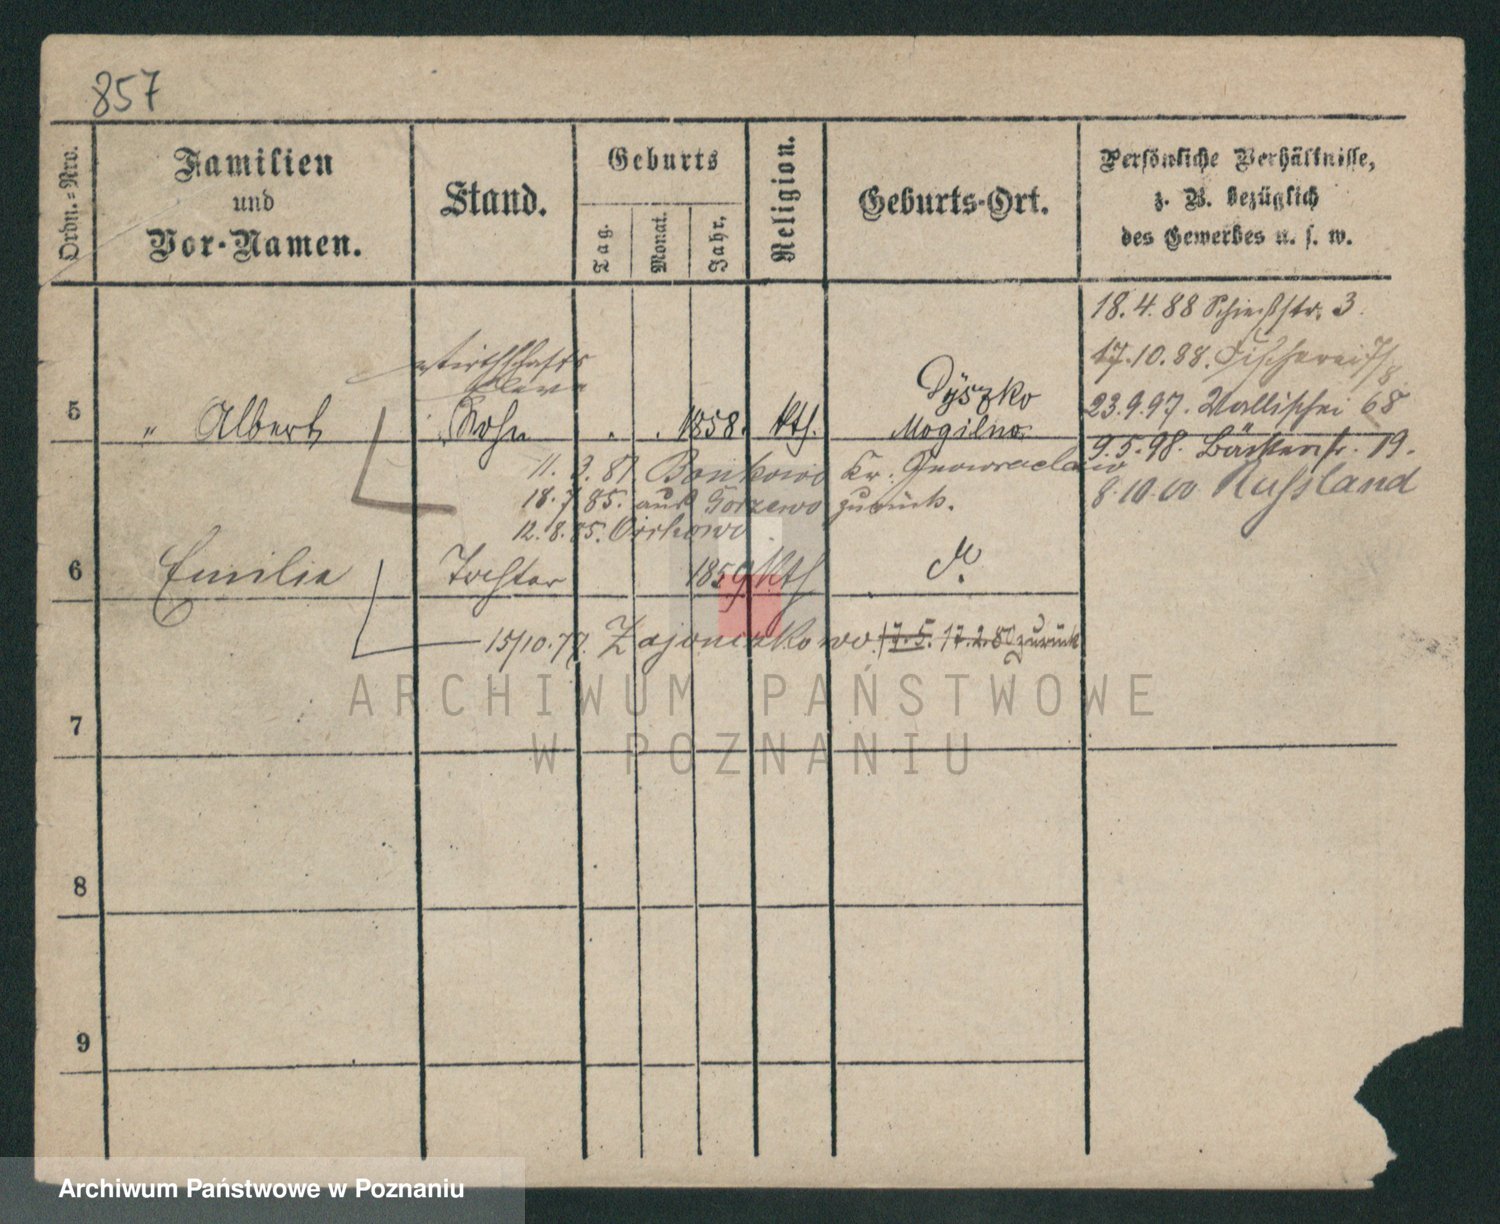 857
Ordn.=Nro.
Familien
und
Vor-Namen.
Stand.
Geburts
Tag.
Monat.
Jahr.
Religion.
Geburts-Ort.
Persönliche Verhältnisse,
z. B. bezüglich
des Gewerbes u. s. w.
18. 4. 88 Schießstr. 3.
17. 10. 88. Fischerei 7/8
23. 9. 97. Wallischei 68
9. 5. 98. Bäckerstr. 19.
8. 10. 00 Russland
Wirthschafts
Eleve
5
" Albert
Sohn
. . 1858.
kth.
Dÿszko
Mogilno
11. 9. 81 Bonkowo Kr. Inowraclaw
18. 7. 85. aus Gorzewo zurück.
12. 8. 85.
6
Emilie
Tochter
1859
kth
d.
15/10. 77. Zajonczkowo 17. 5. 17. 2. 80 zurück
7
8
9
ARCHIWUM PAŃSTWOWE
W POZNANIU
Archiwum Państwowe w Poznaniu